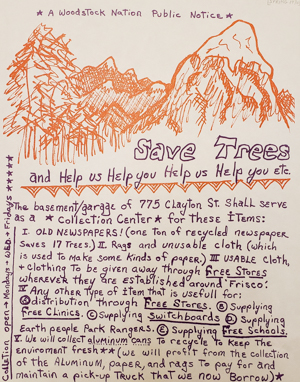 ★ A Woodstock Nation Public Notice ★
Save Trees
and Help us Help you Help us Help you etc.
The basement/garage of 775 Clayton St. Shall serve
as a ★ Collection Center ★ for these Items:
I. OLD NEWSPAPERS! (one Ton of recycled newspaper
Saves 17 Trees.) II Rags and unusable cloth (which
is used to make some Kinds of paper.) III USABLE cloth,
+ clothing To be given away through Free Stores
wherever they are established around 'Frisco!
IV Any other type of item that is usefull for:
Ⓐ distribution through Free Stores, Ⓑ Supplying
Free Clinics. Ⓒ Supplying Switchboards Ⓓ Supplying
Earth people Park Rangers. Ⓔ Supplying Free Schools.
V. We will collect aluminum cans To recycle to Keep the
enviroment fresh ★★ (we will profit from the collection
of the Aluminum, paper, and rags To pay for and
maintain a pick-up Truck that we now Borrow) ★
Collection open → Mondays + Wed. + Fridays ★★★★★